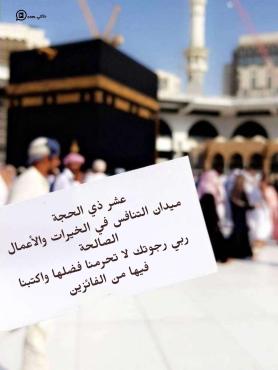 عشر ذي الحجة
ميدان التنافس في الخيرات والأعمال
الصالحة
ربي رجوتك لا تحرمنا فضلها واكتبنا
فيها من الفائزين